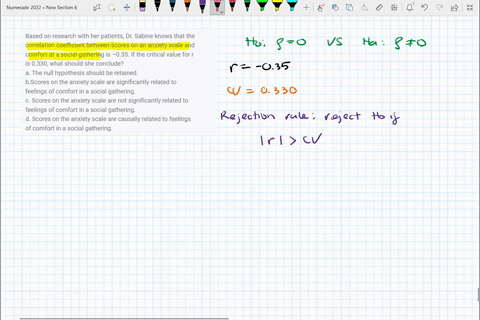 Numerade 2022 » New Section 6
Based on research with her patients, Dr. Sabine knows that the
correlation coefficient between scores on an anxiety scale and
comfort at a social gathering is −0.35. If the critical value for r
is 0.330, what should she conclude?
a. The null hypothesis should be retained.
b.Scores on the anxiety scale are significantly related to
feelings of comfort in a social gathering.
c. Scores on the anxiety scale are not significantly related to
feelings of comfort in a social gathering.
d. Scores on the anxiety scale are causally related to feelings
of comfort in a social gathering.
Ho: ρ=0 VS Ha: ρ≠0
r = -0.35
CV = 0.330
Rejection rule: reject Ho if
|r| > CV